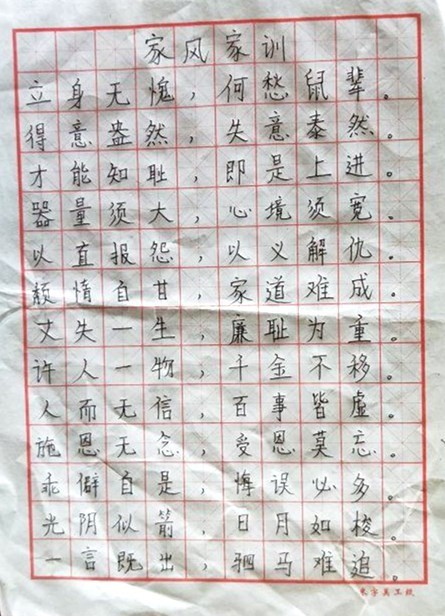 家风家训
立身无愧，何愁鼠辈。
得意盎然，失意泰然。
才能知耻，即是上进。
器量须大，心境须宽。
以直报怨，以义解仇。
颓惰自甘，家道难成。
丈失一生，廉耻为重。
许人一物，千金不移。
人而无信，百事皆虚。
施恩无念，受恩莫忘。
乖僻自是，悔误必多。
光阴似箭，日月如梭。
一言既出，驷马难追。